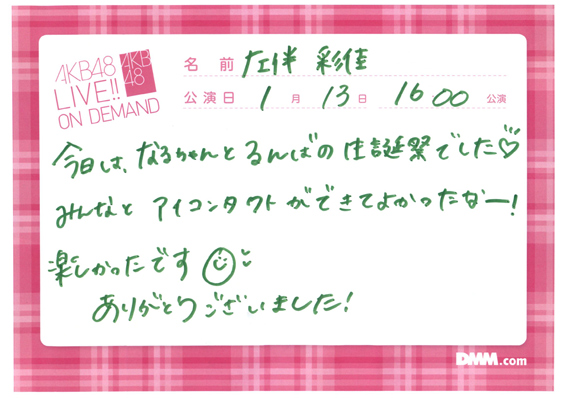 AKB48
LIVE!!
ON DEMAND
AKB
48
名前 左伴 彩佳
公演日 1月 13日 16 00 公演
今日は、なるちゃんとるんばの生誕祭でした♡
みんなと アイコンタクトができてよかったなー!
楽しかったです
ありがとうございました!
DMM.com